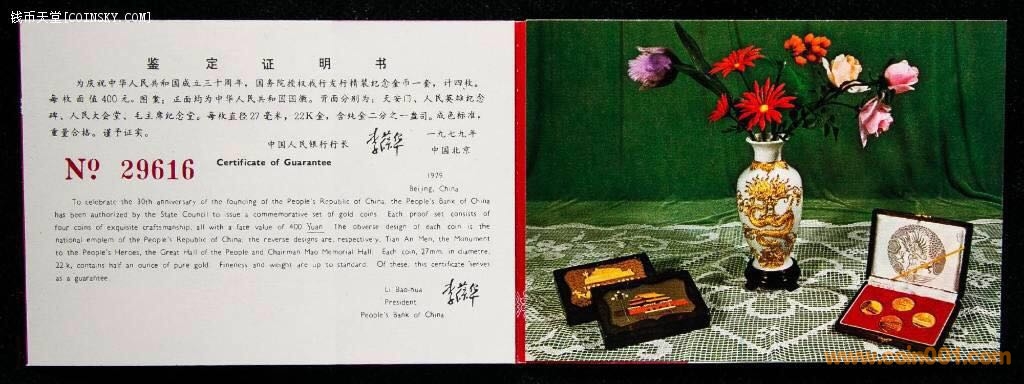 钱币天堂[COINSKY.COM]
鉴定证明书
为庆祝中华人民共和国成立三十周年，国务院授权我行发行精装纪念金币一套，计四枚，
每枚面值400元。图案；正面均为中华人民共和国国徽。背面分别为；天安门、人民英雄纪念
碑、人民大会堂、毛主席纪念堂。每枚直径27毫米，22K金，含纯金二分之一盎司。成色标准，
重量合格。谨予证实。
中国人民银行行长 李葆华 一九七九年
中国北京
№ 29616
Certificate of Guarantee
1979
Beijing, China
To celebrate the 30th anniversary of the founding of the People's Republic of China, the People's Bank of China
has been authorized by the State Council to issue a commemorative set of gold coins. Each proof set consists of
four coins of exquisite craftsmanship, all with a face value of 400 Yuan. The obverse design of each coin is the
national emblem of the People's Republic of China, the reverse designs are, respectively, Tian An Men, the Monument
to the People's Heroes, the Great Hall of the People and Chairman Mao Memorial Hall. Each coin, 27mm. in diametre,
22 k, contains half an ounce of pure gold. Fineness and weight are up to standard. Of these, this certificate serves
as a guarantee.
Li Bao-hua 李葆华
President
People's Bank of China
www.coin001.com